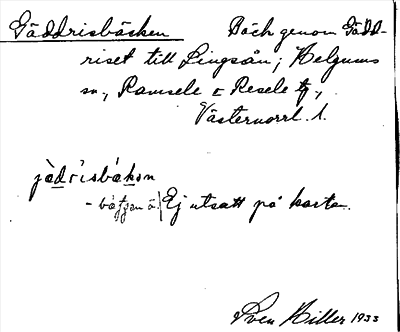 Gäddrisbäcken Bäck genom Gädd-
riset till Lingsån; Helgums
sn, Ramsele o Resele tg,
Västernorrl. l.
jädrisbäkən
Ej utsatt på karta.
Sven Hiller 1933